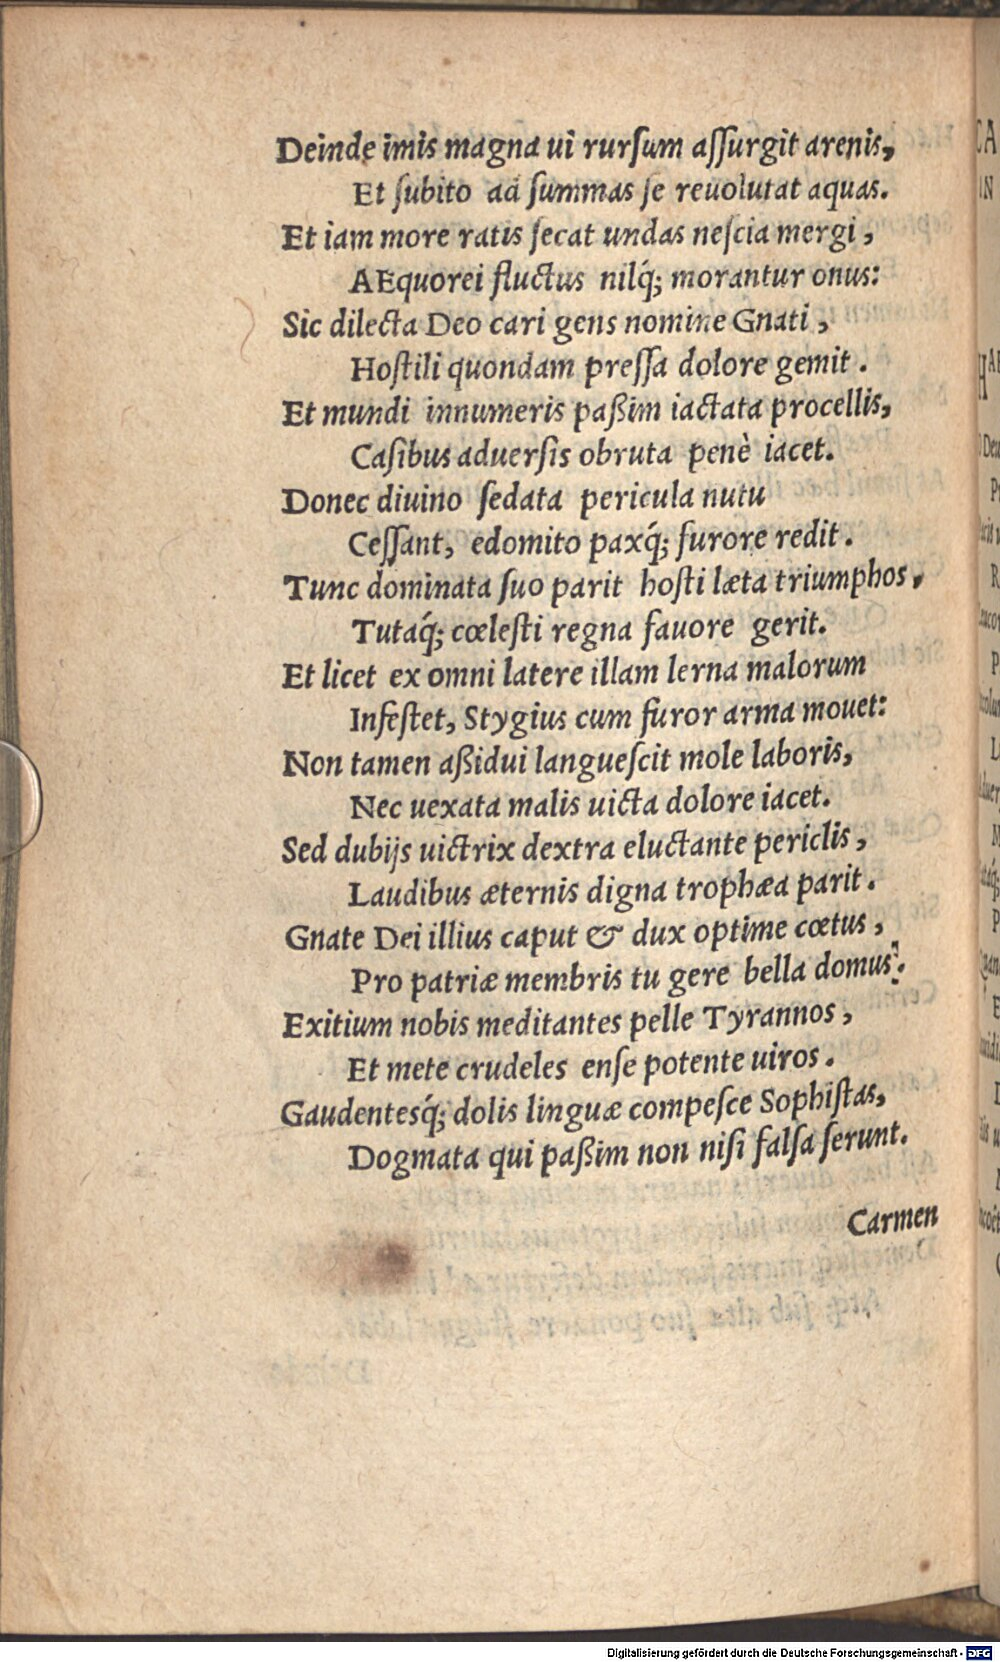 Deinde imis magna ui rurſum aſſurgit arenis,
Et ſubito ad ſummas ſe reuolutat aquas.
Et iam more ratis ſecat undas neſcia mergi,
AEquorei fluctus nilq́; morantur onus:
Sic dilecta Deo cari gens nomine Gnati,
Hoſtili quondam preſſa dolore gemit.
Et mundi innumeris paßim iactata procellis,
Caſibus aduerſis obruta penè iacet.
Donec diuino ſedata pericula nutu
Ceſſant, edomito paxq́; furore redit.
Tunc dominata ſuo parit hoſti læta triumphos,
Tutaq́; cœleſti regna fauore gerit.
Et licet ex omni latere illam lerna malorum
Infeſtet, Stygius cum furor arma mouet:
Non tamen aßidui langueſcit mole laboris,
Nec uexata malis uicta dolore iacet.
Sed dubijs uictrix dextra eluctante periclis,
Laudibus æternis digna trophæa parit.
Gnate Dei illius caput & dux optime cœtus,
Pro patriæ membris tu gere bella domus.
Exitium nobis meditantes pelle Tyrannos,
Et mete crudeles enſe potente uiros.
Gaudentesq́; dolis linguæ compeſce Sophiſtas,
Dogmata qui paßim non niſi falſa ſerunt.
Carmen
Digitalisierung gefördert durch die Deutsche Forschungsgemeinschaft - DFG